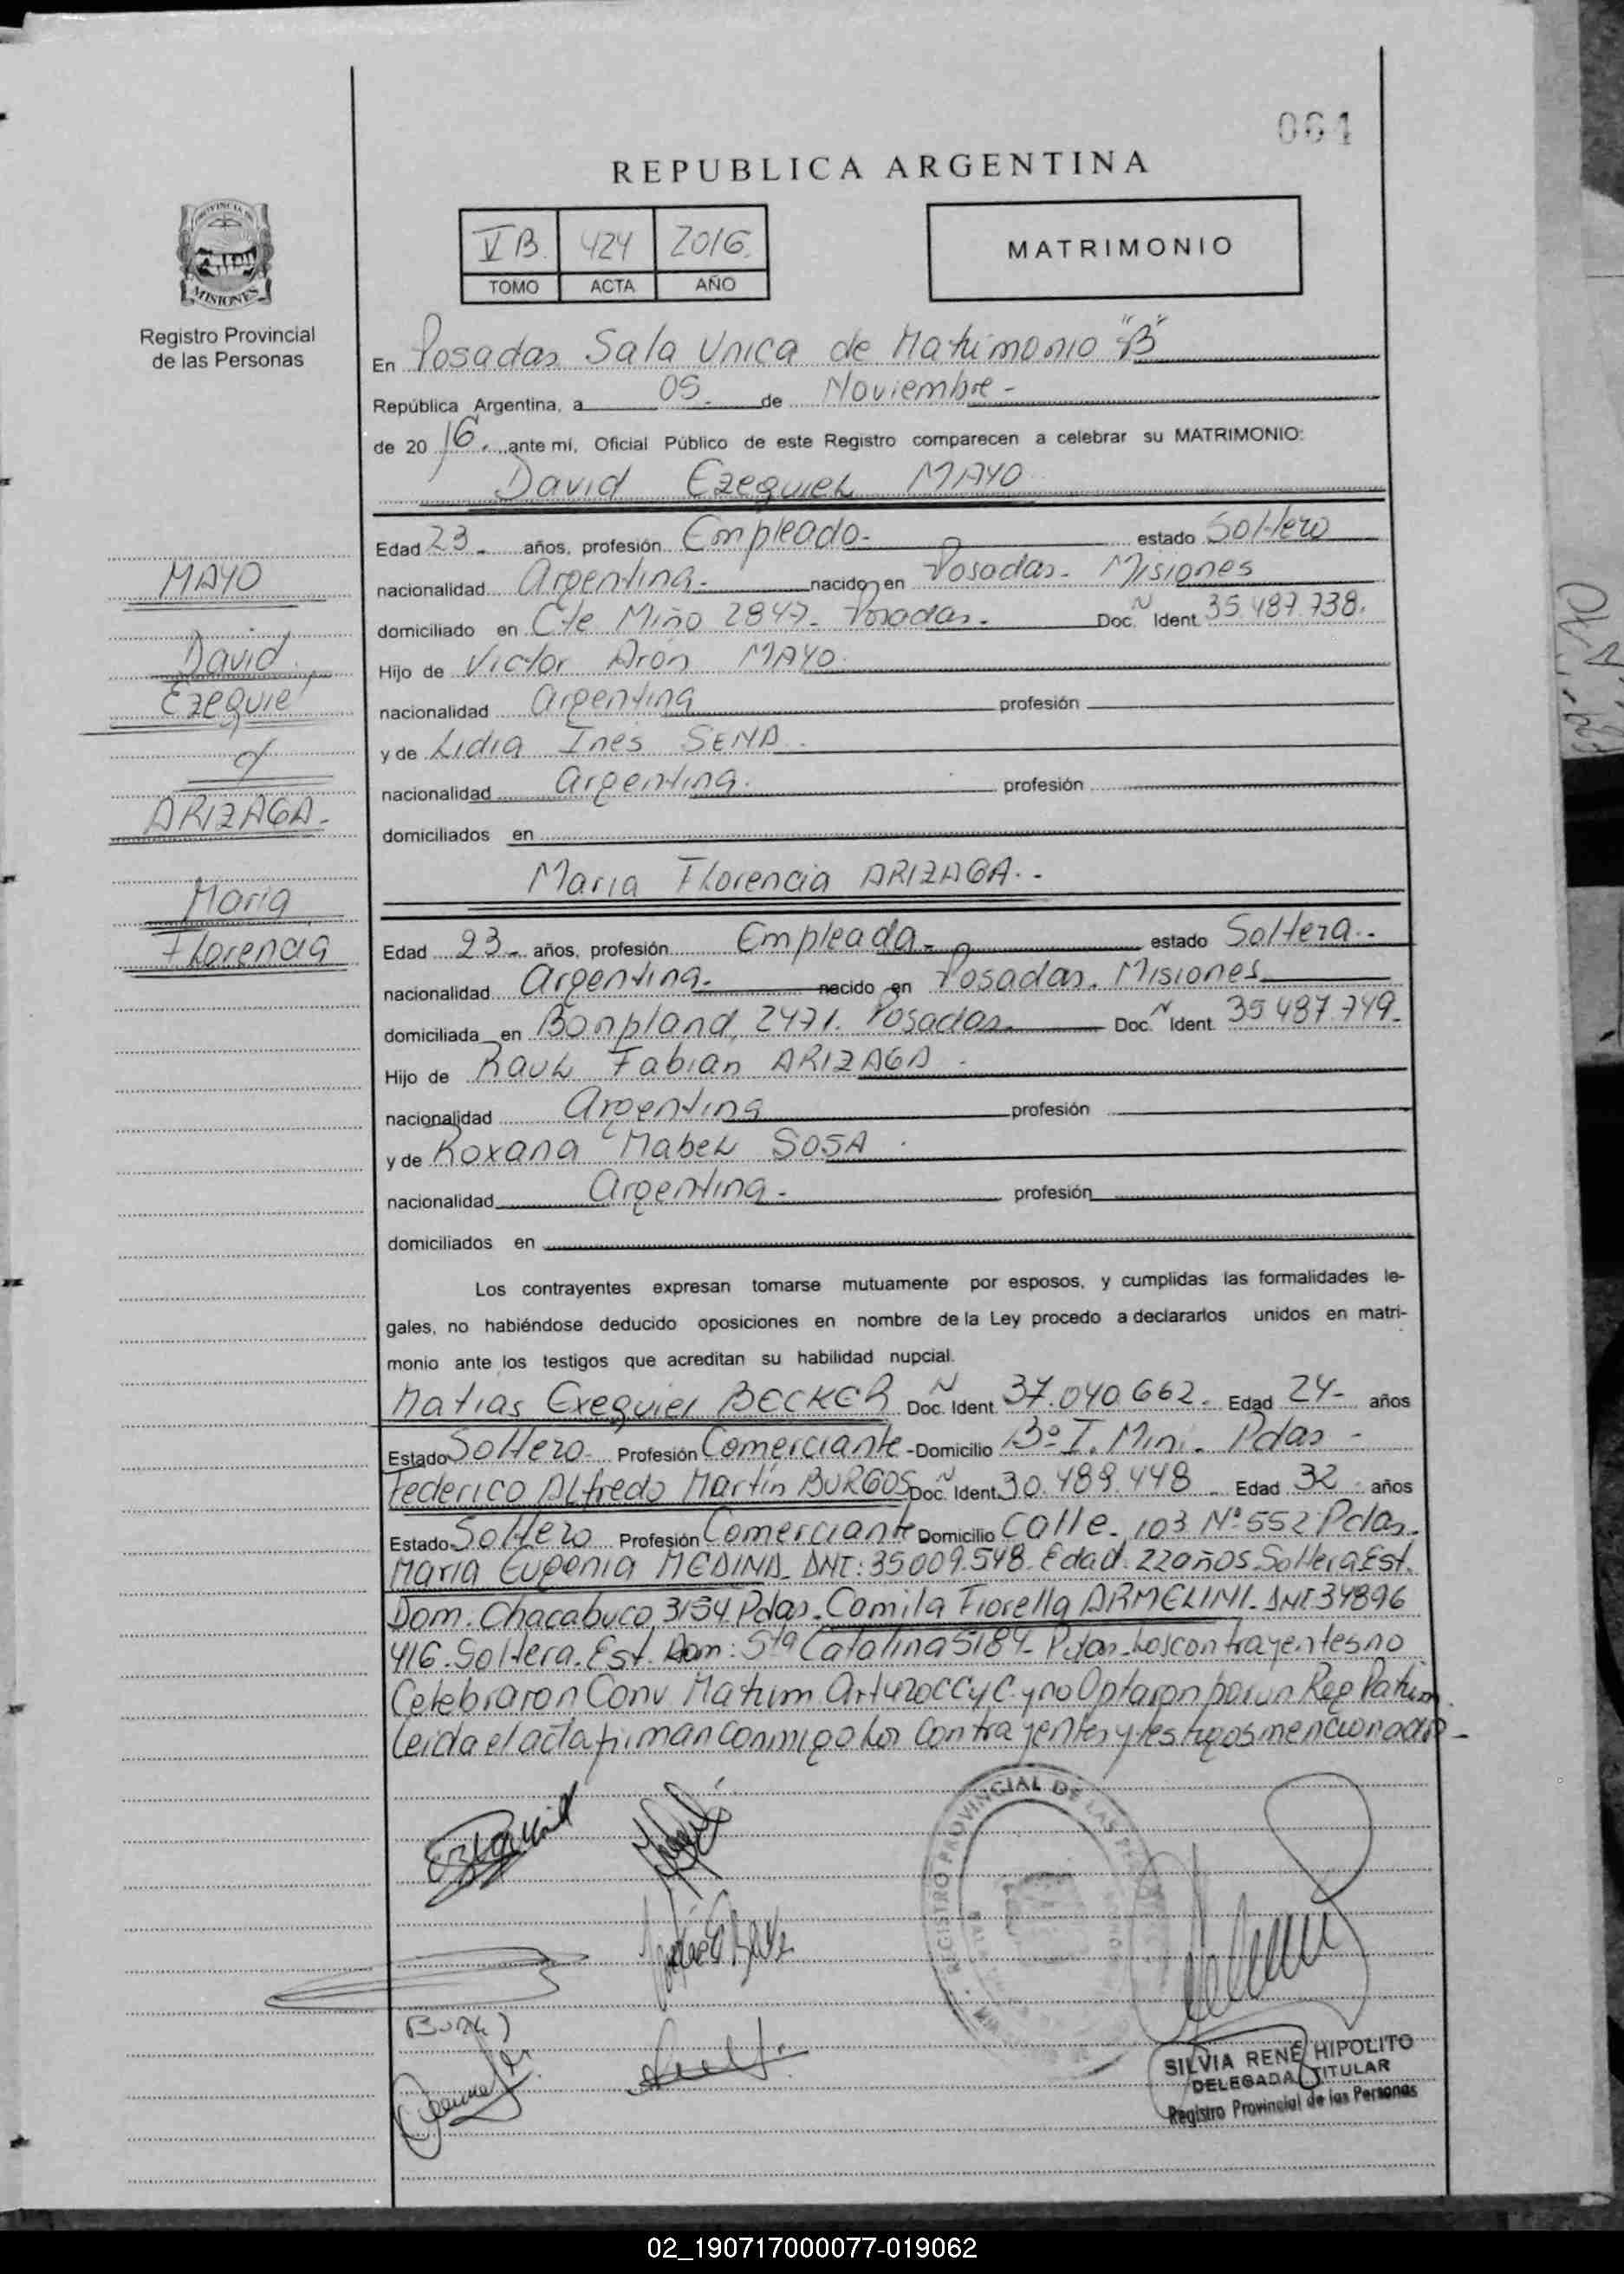 061
REPUBLICA ARGENTINA
PROVINCIA DE
MISIONES
Registro Provincial
de las Personas
V B. 424 2016.
TOMO ACTA AÑO
MATRIMONIO
En Posadas Sala Unica de Matrimonio "B"
República Argentina, a 05. de Noviembre -
de 20 16. ante mí, Oficial Público de este Registro comparecen a celebrar su MATRIMONIO:
David Ezequiel MAYO
Edad 23- años, profesión Empleado- estado Soltero
nacionalidad Argentina- nacido en Posadas- Misiones
domiciliado en Cte Miño 2847- Posadas- Doc. N Ident. 35.487.738.
Hijo de Victor Arón MAYO.
nacionalidad Argentina profesión
y de Lidia Ines SENA -
nacionalidad Argentina. profesión
domiciliados en
Maria Florencia ARIZAGA. -
MAYO
David
Ezequiel
c/
ARIZAGA-
Maria
Florencia
Edad 23- años, profesión Empleada- estado Soltera. -
nacionalidad Argentina- nacido en Posadas. Misiones
domiciliada en Bonpland 2471. Posadas. Doc. N Ident. 35 487.749-
Hijo de Raul Fabian ARIZAGA -
nacionalidad Argentina profesión
y de Roxana Mabel SOSA .
nacionalidad Argentina- profesión
domiciliados en
Los contrayentes expresan tomarse mutuamente por esposos, y cumplidas las formalidades le-
gales, no habiéndose deducido oposiciones en nombre de la Ley procedo a declararlos unidos en matri-
monio ante los testigos que acreditan su habilidad nupcial.
Matias Exequiel BECKER Doc. N Ident. 37.040.662- Edad 24- años
Estado Soltero- Profesión Comerciante - Domicilio Bº I. Mini- Pdas -
Federico Alfredo Martín BURGOS Doc. N Ident. 30.489.448 - Edad 32 años
Estado Soltero Profesión Comerciante Domicilio Calle. 103 Nº 552 Pdas.
Maria Eugenia MEDINA- DNI: 35009.548. Edad. 22 años. Soltera Est.
Dom. Chacabuco 3154 Pdas. Camila Fiorella ARMELINI- DNI 34896
416. Soltera. Est. Dom: Sta Catalina 5184- Pdas. Los contrayentes no
Celebraron Conv. Matrim. Art 420 CC y C. y no Optaron por un Reg Patrim.
Leida el acta firman conmigo los contrayentes y testigos mencionados-
REGISTRO PROVINCIAL DE LAS
SILVIA RENÉ HIPOLITO
DELEGADA TITULAR
Registro Provincial de las Personas
02_190717000077-019062